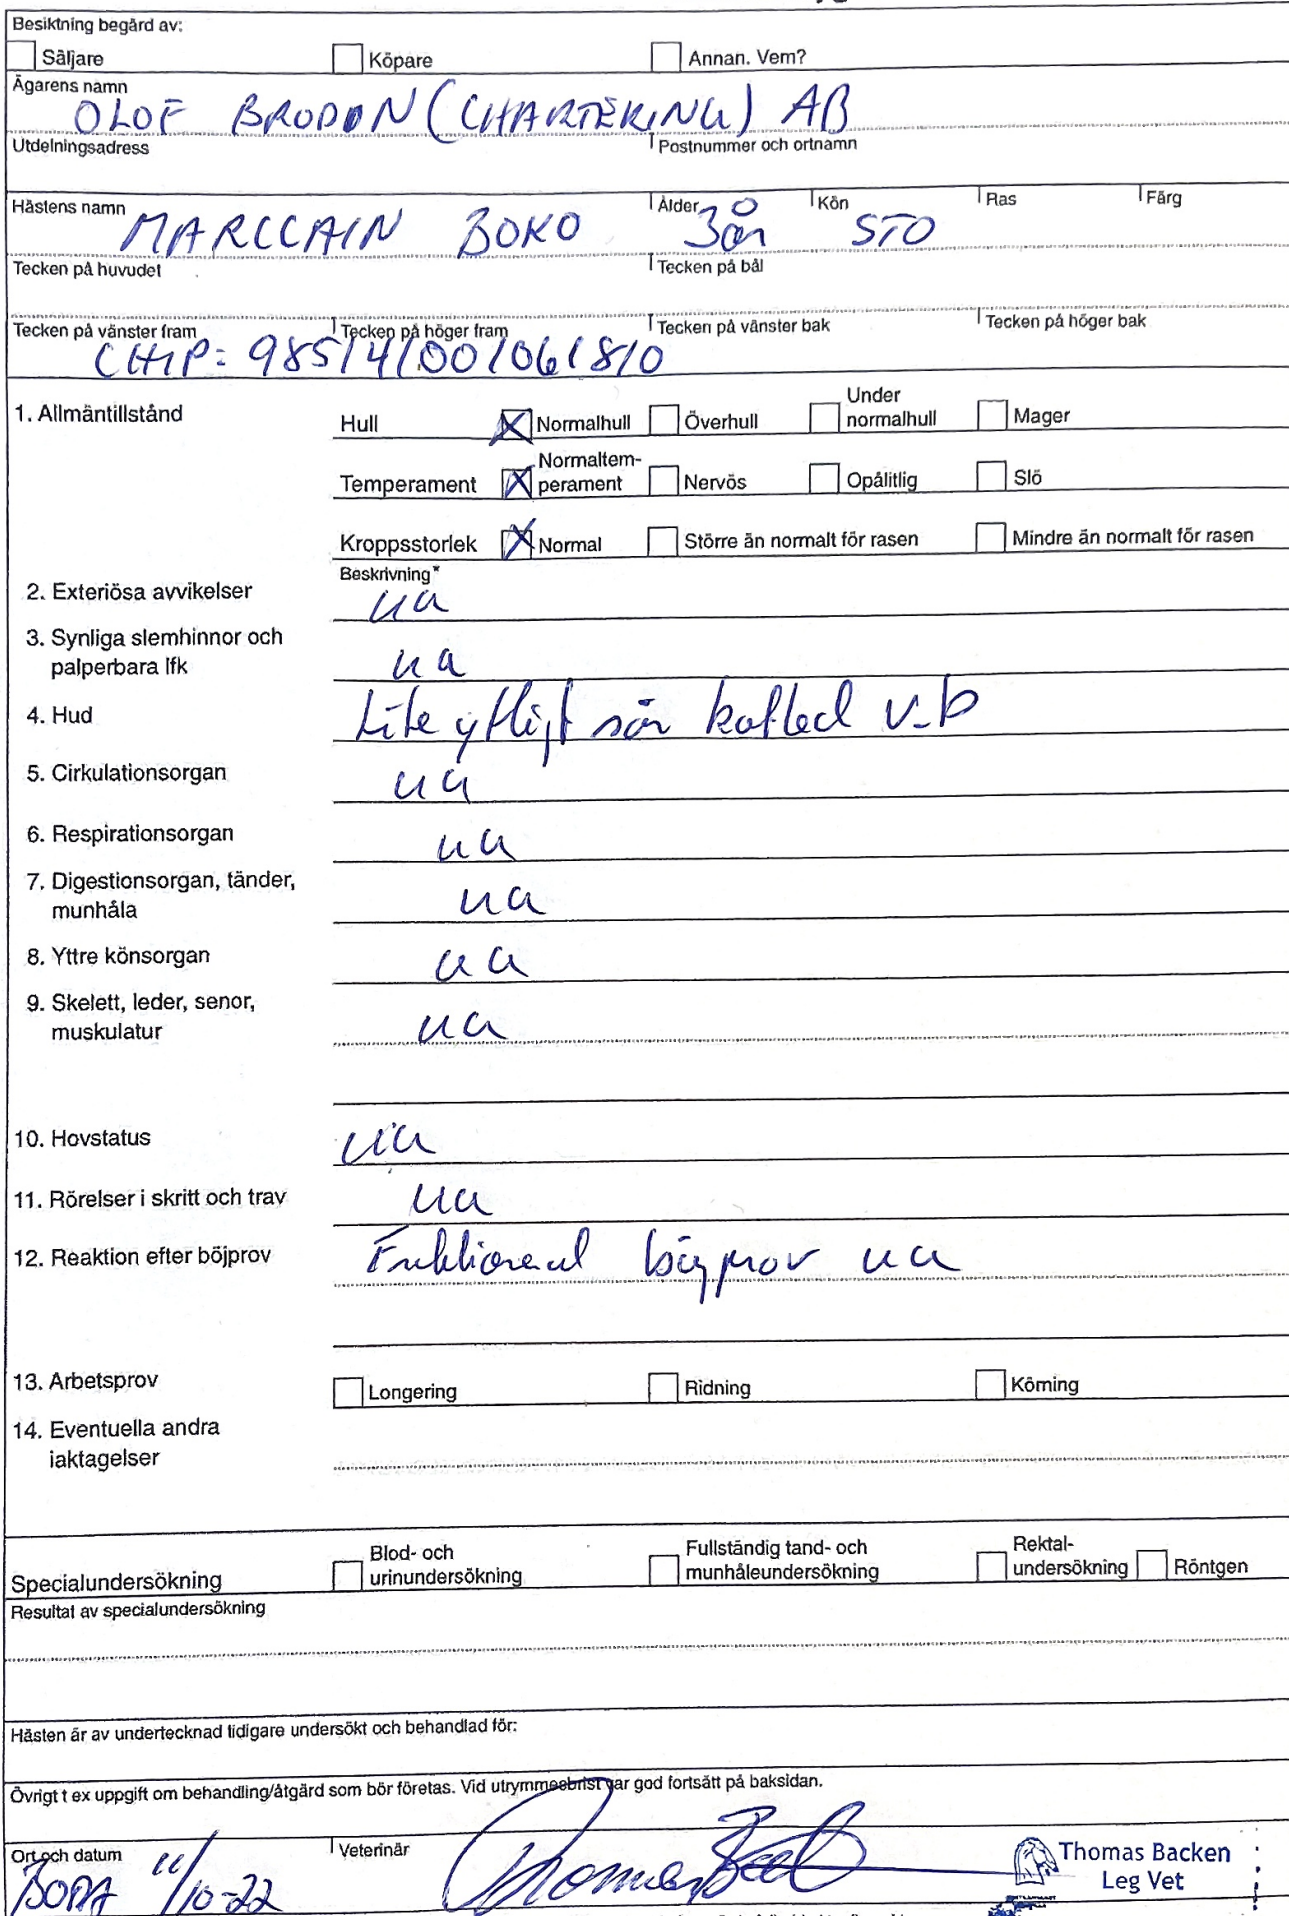 Besiktning begärd av:
Säljare Köpare Annan. Vem?
Ägarens namn
OLOF BRODON (CHARTERING) AB
Utdelningsadress Postnummer och ortnamn
Hästens namn Ålder Kön Ras Färg
MARCCAIN BOKO 3år STO
Tecken på huvudet Tecken på bål
Tecken på vänster fram Tecken på höger fram Tecken på vänster bak Tecken på höger bak
CHIP: 985/4/00/06/8/0
1. Allmäntillstånd
Hull Normalhull Överhull Under normalhull Mager
Temperament Normaltem-
perament Nervös Opålitlig Slö
Kroppsstorlek Normal Större än normalt för rasen Mindre än normalt för rasen
Beskrivning*
2. Exteriösa avvikelser ua
3. Synliga slemhinnor och
palperbara lfk ua
4. Hud Lite ytligt sår kotled v.b
5. Cirkulationsorgan ua
6. Respirationsorgan ua
7. Digestionsorgan, tänder,
munhåla ua
8. Yttre könsorgan ua
9. Skelett, leder, senor,
muskulatur ua
10. Hovstatus ua
11. Rörelser i skritt och trav ua
12. Reaktion efter böjprov böjprov ua
13. Arbetsprov Longering Ridning Körning
14. Eventuella andra
iaktagelser
Specialundersökning Blod- och
urinundersökning Fullständig tand- och
munhåleundersökning Rektal-
undersökning Röntgen
Resultat av specialundersökning
Hästen är av undertecknad tidigare undersökt och behandlad för:
Övrigt t ex uppgift om behandling/åtgärd som bör företas. Vid utrymmesbrist var god fortsätt på baksidan.
Ort och datum Veterinär
BODA 11/10-22 Thomas Backen
Leg Vet